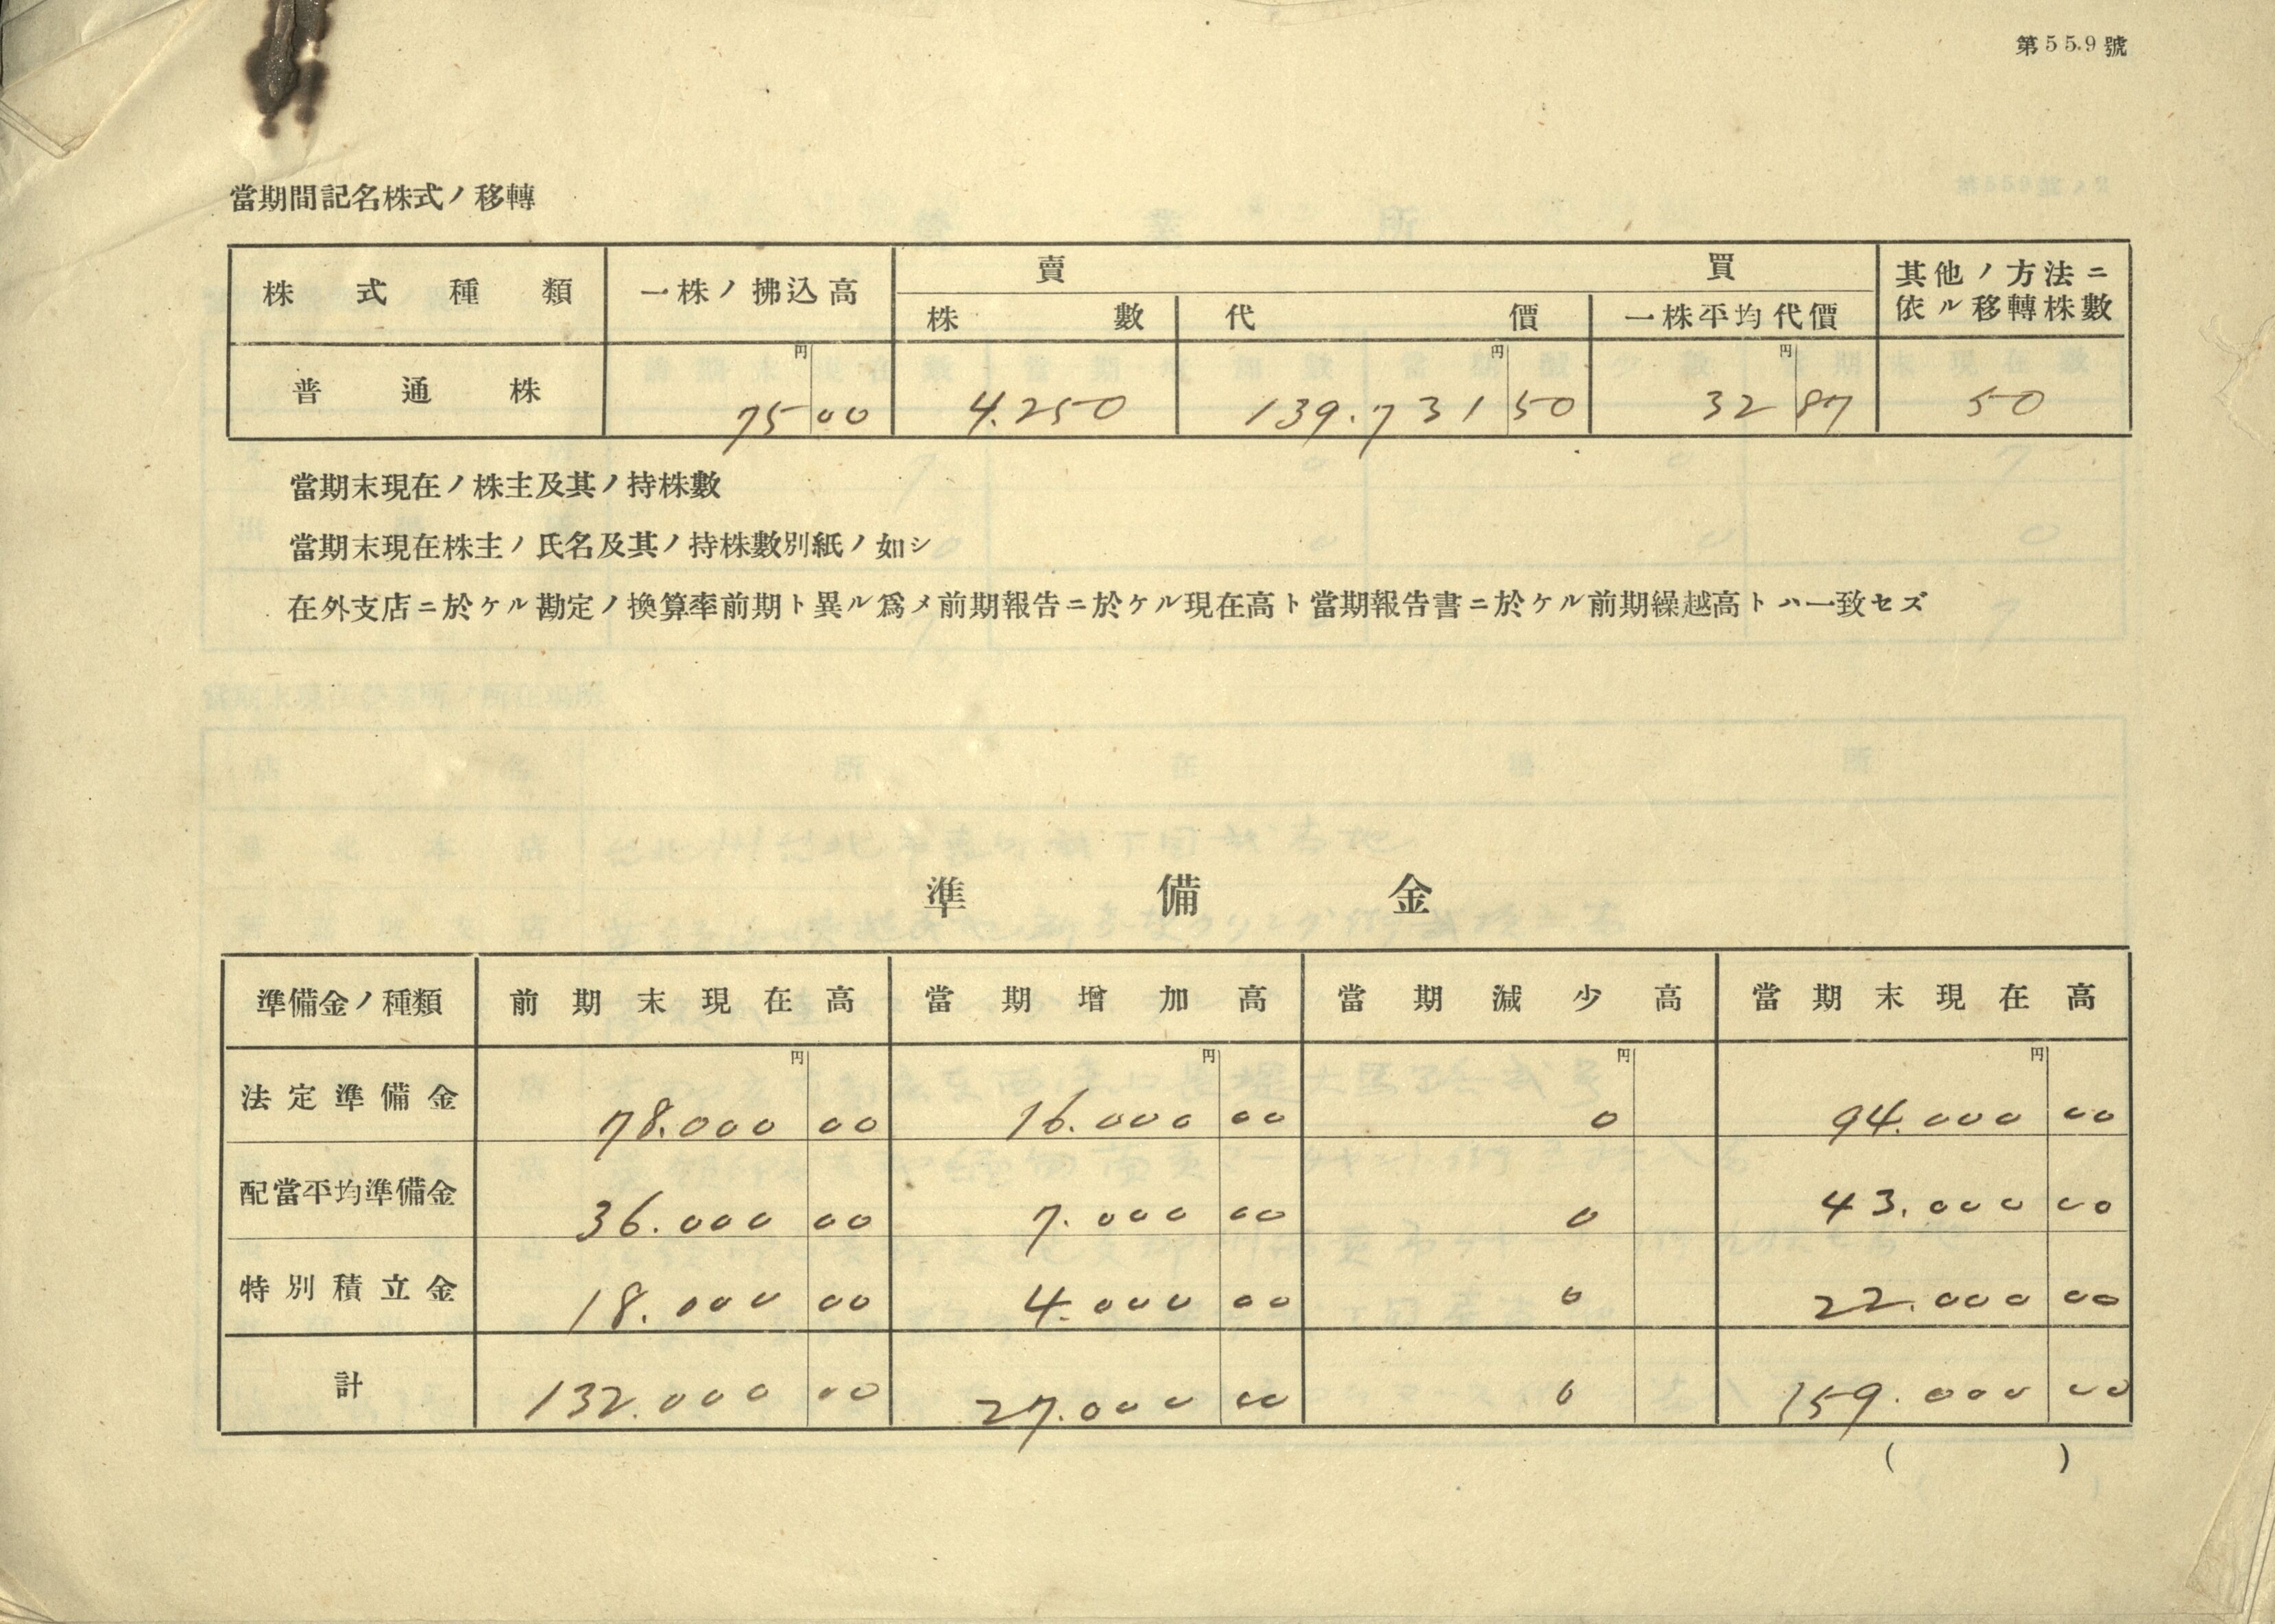 第559號
當期間記名株式ノ移轉
株式種類 一株ノ拂込高 賣買 其他ノ方法ニ依ル移轉株數
株數 代價 一株平均代價
円 円 円
普通株 75 00 4.250 139.731 50 32 87 50
當期末現在ノ株主及其ノ持株數
當期末現在株主ノ氏名及其ノ持株數別紙ノ如シ
在外支店ニ於ケル勘定ノ換算率前期ト異ル爲メ前期報告ニ於ケル現在高ト當期報告書ニ於ケル前期繰越高トハ一致セズ
準備金
準備金ノ種類 前期末現在高 當期增加高 當期減少高 當期末現在高
円 円 円 円
法定準備金 78.000 00 16.000 00 0 94.000 00
配當平均準備金 36.000 00 7.000 00 0 43.000 00
特別積立金 18.000 00 4.000 00 0 22.000 00
計 132.000 00 27.000 00 0 159.000 00
( )